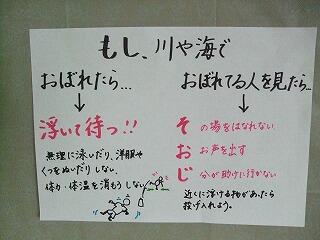 もし、川や海で
おぼれたら…
↓
浮いて待つ!!
無理に泳いだり、洋服や
くつをぬいだりしない。
体力・体温を消もうしない。
おぼれてる人を見たら…
↓
その場をはなれない
おお声を出す
じ分が助けに行かない
近くに浮ける物があったら
投げ入れよう。